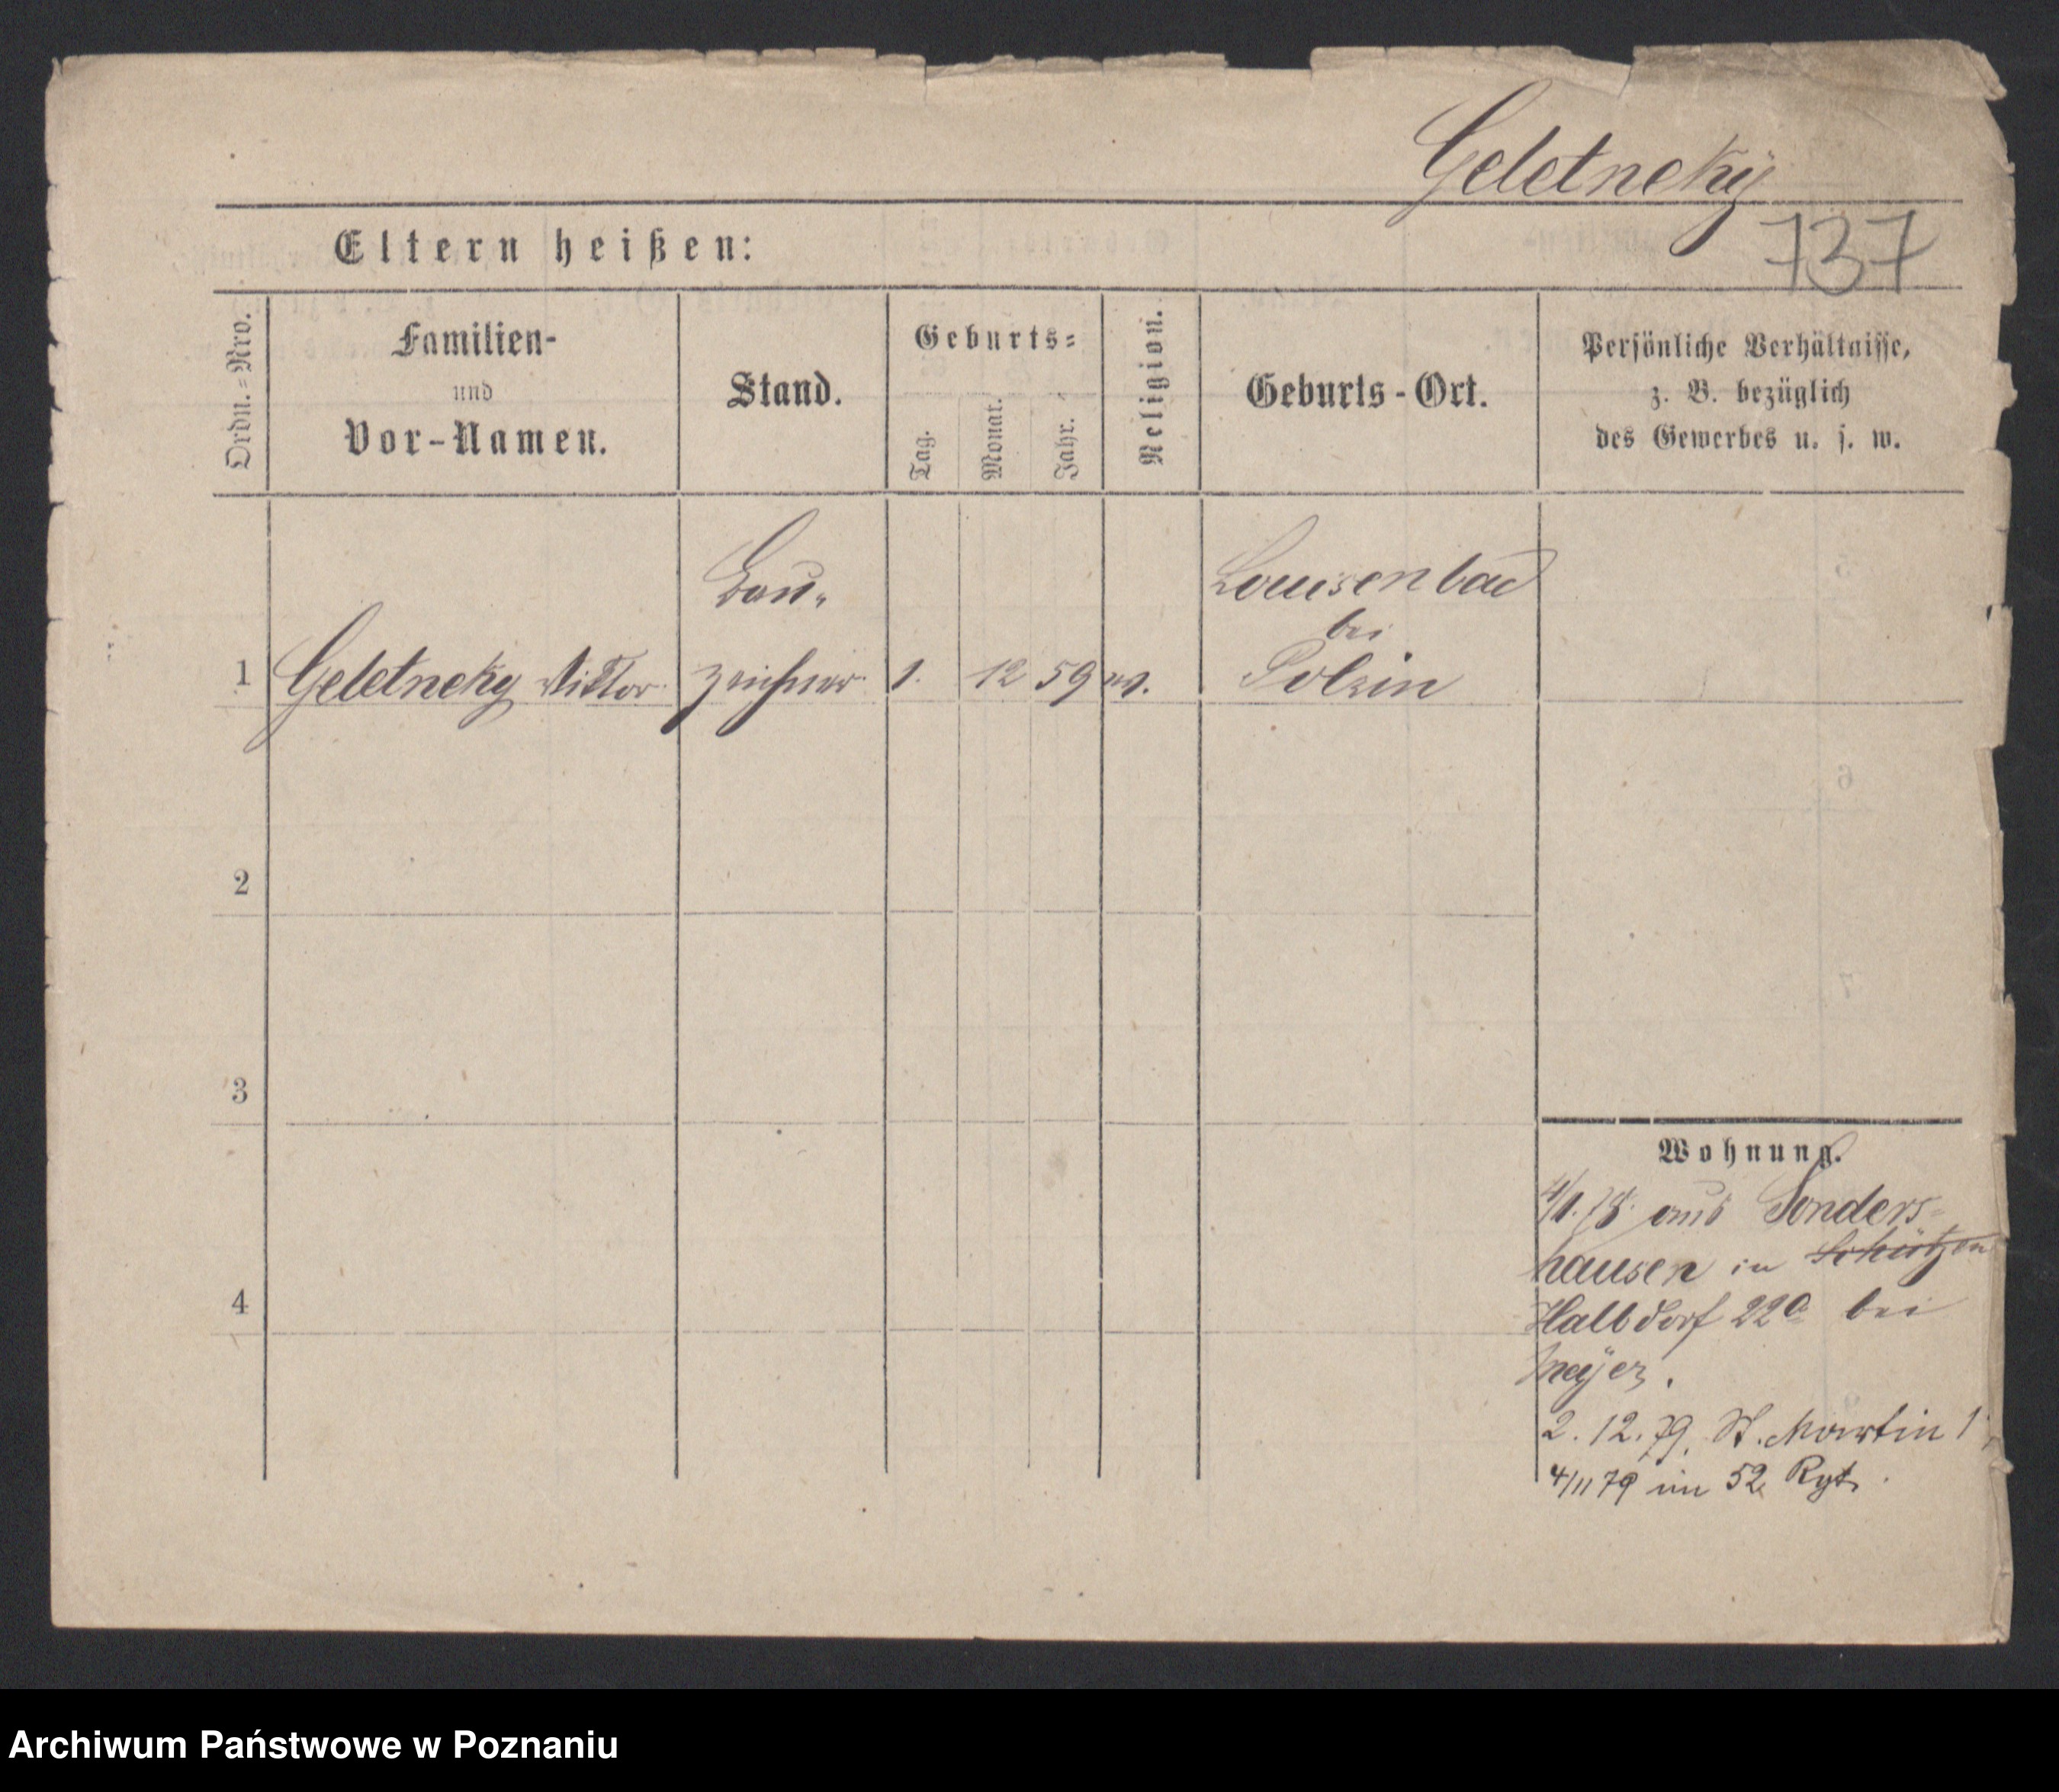 Geletneky
737
Eltern heißen:
Ordn.=Nro.
Familien-
und
Vor-Namen.
Stand.
Geburts=
Tag.
Monat.
Jahr.
Religion.
Geburts-Ort.
Persönliche Verhältnisse,
z. B. bezüglich
des Gewerbes u. s. w.
1 Geletneky Viktor
Bau-
zeichner
1. 12 59
Louisenbad
bei
Polzin
2
3
4
Wohnung.
4/1. 78 aus Sonders-
hausen in Schützen
Halbdorf 22a bei
Meÿer.
2. 12. 79. St. Martin 1
4/11 79 in 52 Rgt.
Archiwum Państwowe w Poznaniu